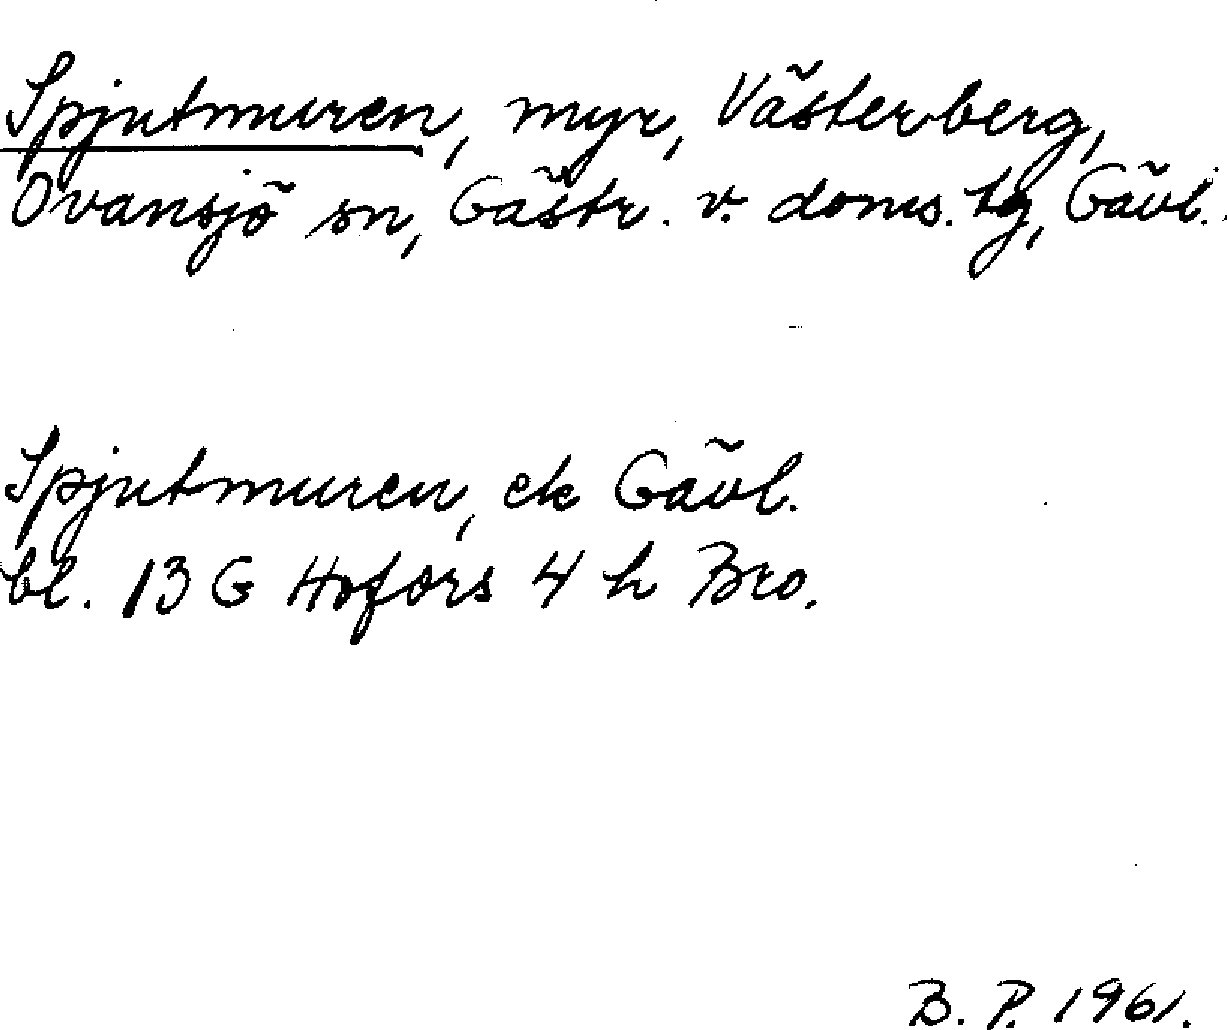 Spjutmuren, myr, Västerberg,
Ovansjö sn, Gästr. v. doms. tg, Gävl.
Spjutmuren, ek Gävl.
bl. 13 G Hofors 4 h Bro.
B. P. 1961.